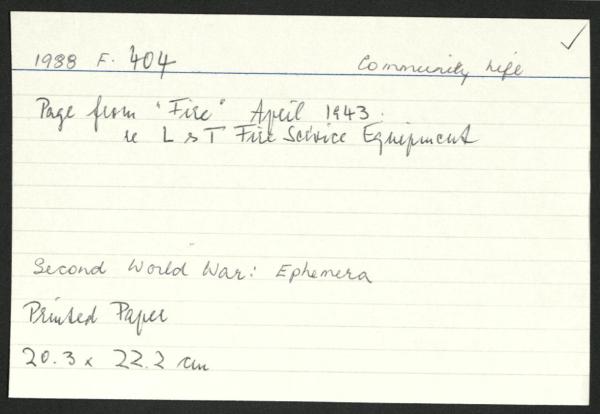 1988 F. 404 Community Life
Page from "Fire" April 1943.
re L & T Fire Service Equipment
Second World War: Ephemera
Printed Paper
20.3 x 22.2 cm